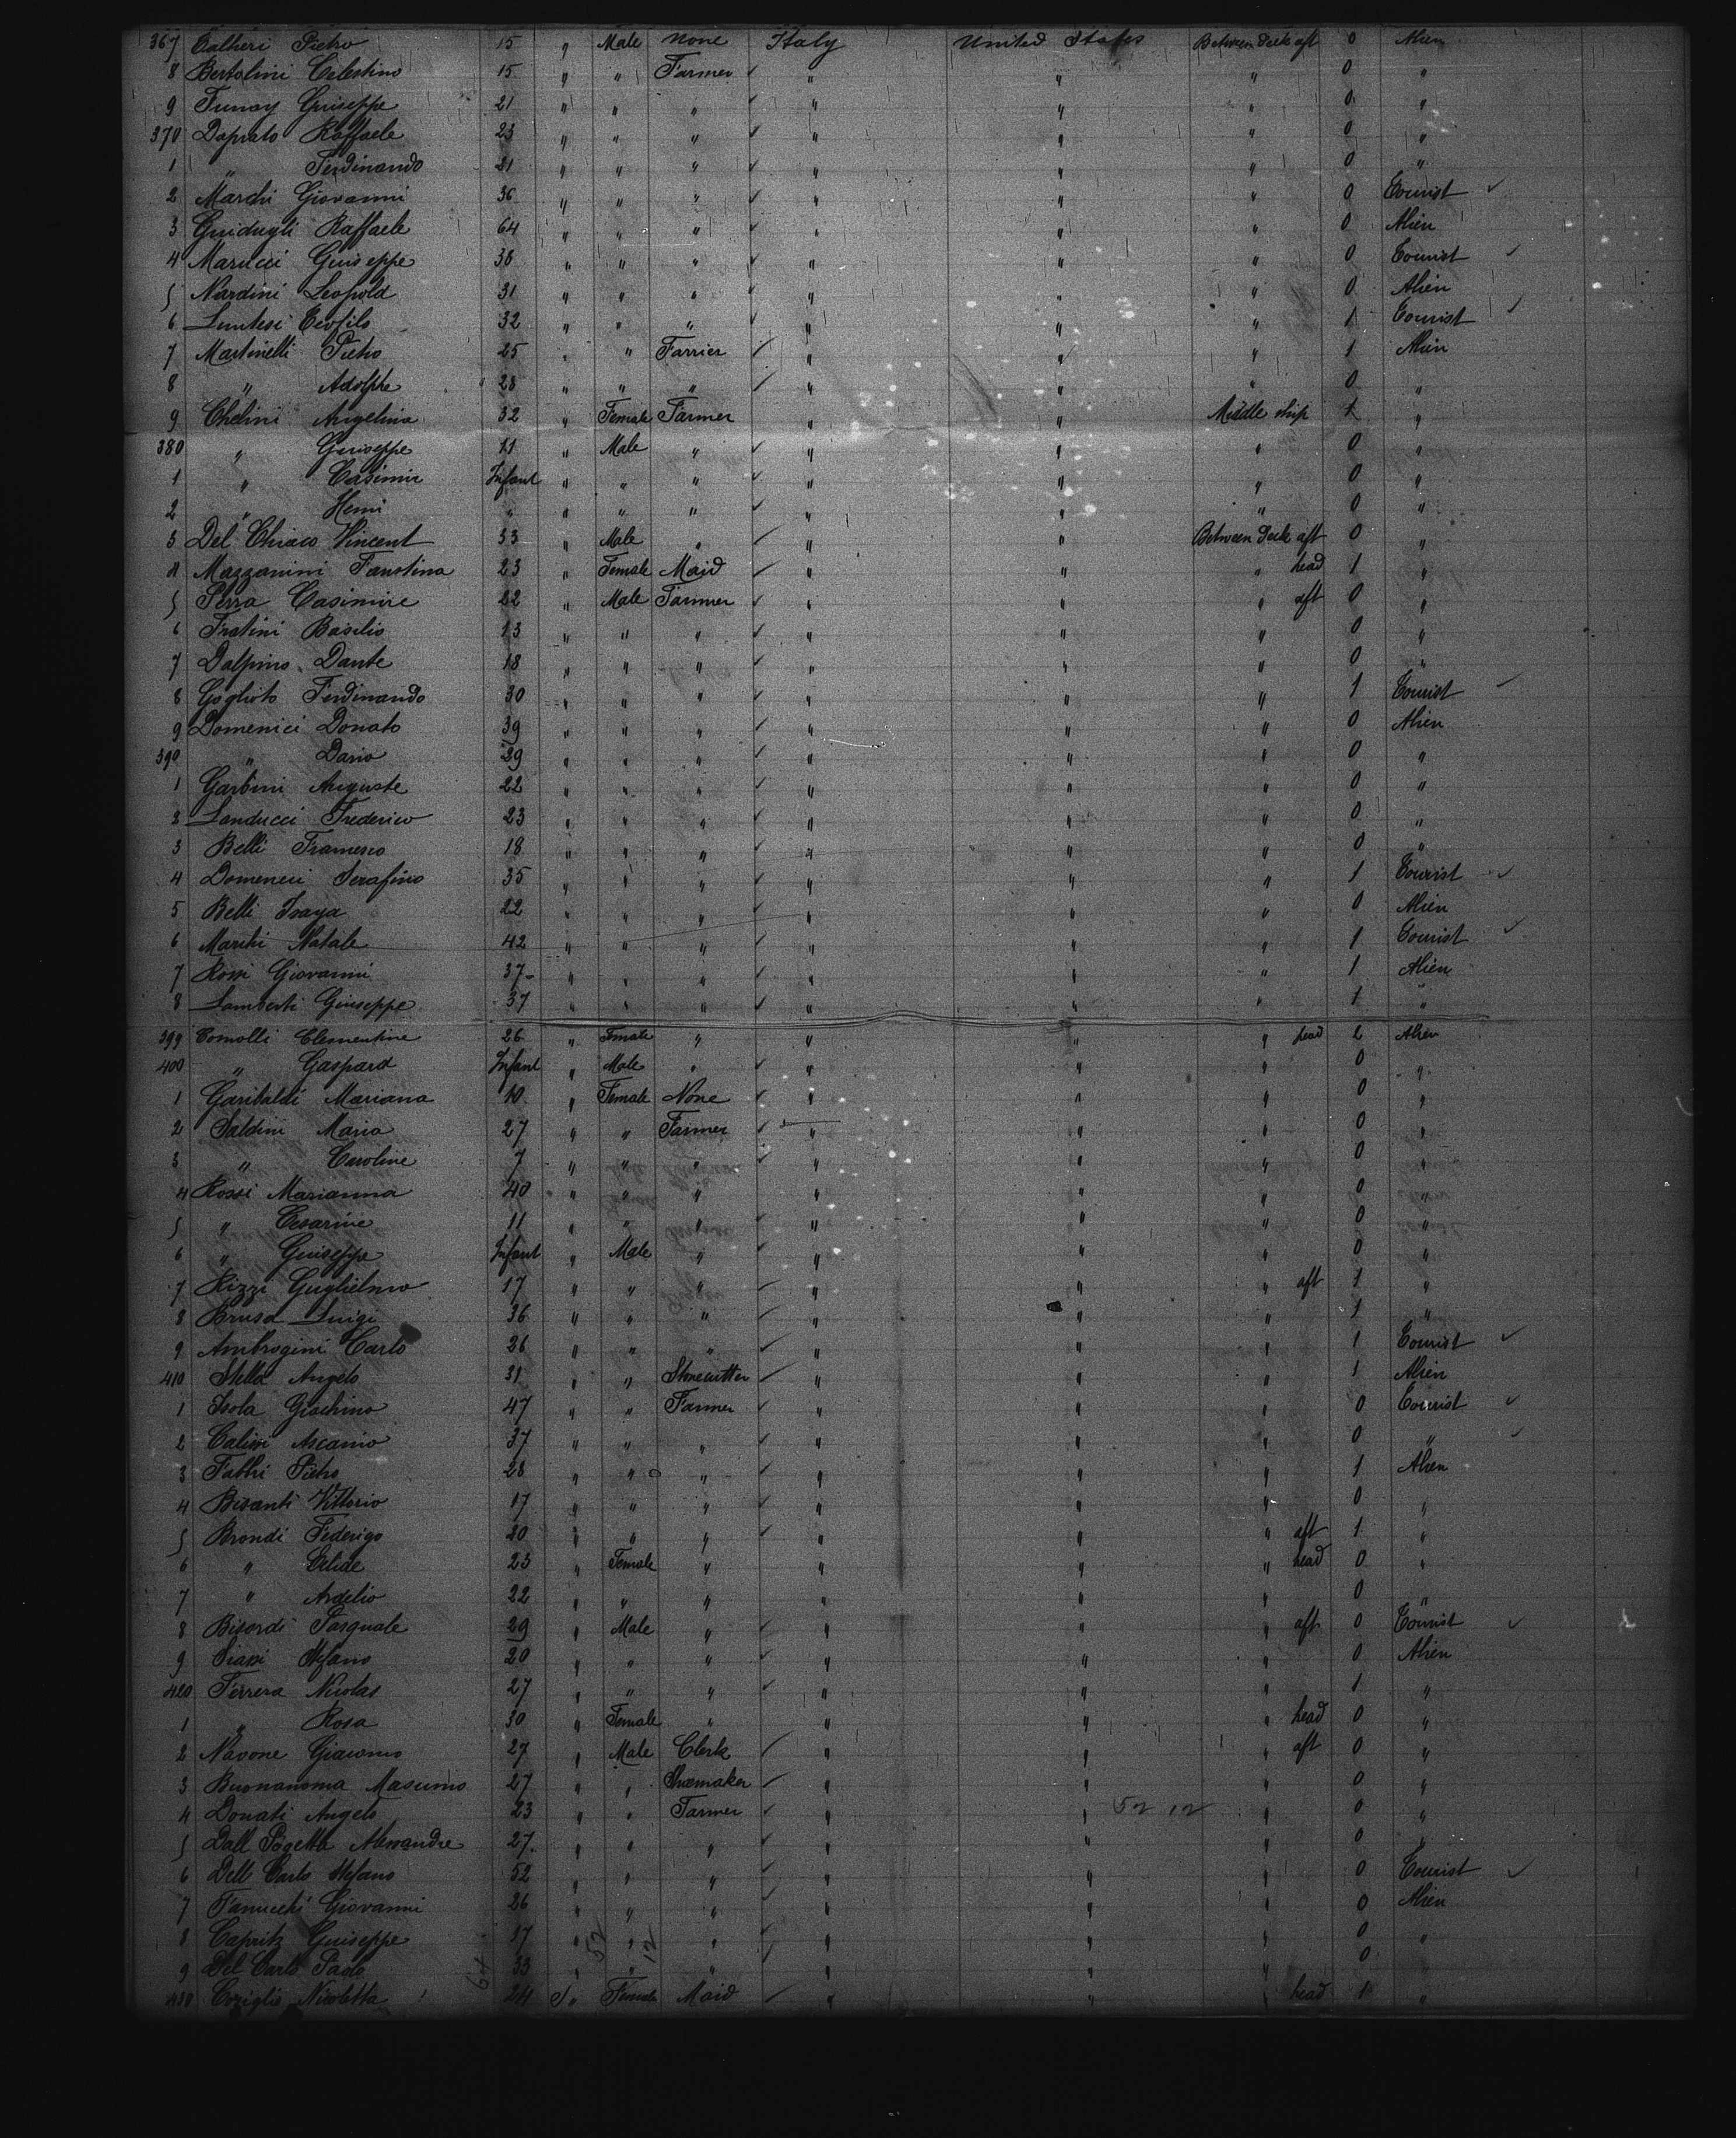 367 Calheri Pietro 15 " Male None Italy United States Between Deck aft 0 Alien
8 Bertolini Celestino 15 " " Farmer " " " 0 "
9 Funay Guiseppe 21 " " " " " " 0 "
370 Daprato Raffaele 23 " " " " " " 0 "
1 " Ferdinando 21 " " " " " " 0 "
2 Marchi Giovanni 36 " " " " " " 0 Tourist
3 Guidugli Raffaele 64 " " " " " " 0 Alien
4 Marucci Guiseppe 38 " " " " " " 0 Tourist
5 Nardini Leopold 31 " " " " " " 0 Alien
6 Luntesi Teofilo 32 " " " " " " 1 Tourist
7 Martinelli Pietro 25 " " Farrier " " " 1 Alien
8 " Adolphe 28 " " " " " " 0 "
9 Chelini Angelina 32 " Female Farmer " " Middle ship 1 "
380 " Guiseppe 11 " Male " " " " 0 "
1 " Casimir Infant " " " " " " 0 "
2 " Henri " " " " " " " 0 "
3 Del Chiaco Vincent 33 " Male " " " Between Deck aft 0 "
4 Mazzanini Faustina 23 " Female Maid " " " head 1 "
5 Perra Casimire 22 " Male Farmer " " " aft 0 "
6 Fratini Basilio 13 " " " " " " 0 "
7 Dalpino Dante 18 " " " " " " 0 "
8 Goglioto Ferdinando 30 " " " " " " 1 Tourist
9 Domenici Donato 39 " " " " " " 0 Alien
390 " Dario 29 " " " " " " 0 "
1 Garbini Auguste 22 " " " " " " 0 "
2 Landucci Frederico 23 " " " " " " 0 "
3 Belli Francesco 18 " " " " " " 0 "
4 Domenici Serafino 35 " " " " " " 1 Tourist
5 Belli Isaya 22 " " " " " " 0 Alien
6 Marchi Natale 42 " " " " " " 1 Tourist
7 Rossi Giovanni 37 " " " " " " 1 Alien
8 Lamberti Giuseppe 37 " " " " " " 1 "
399 Comolli Clementine 26 " Female " " " " head 2 Alien
400 " Gaspard Infant " Male " " " " 0 "
1 Garibaldi Mariana 10 " Female None " " " 0 "
2 Saldini Maria 27 " " Farmer " " " 0 "
3 " Caroline 7 " " " " " " 0 "
4 Rossi Marianna 40 " " " " " " 0 "
5 " Cesarine 11 " " " " " " 0 "
6 " Guiseppe Infant " Male " " " " 0 "
7 Rizzi Guglielmo 17 " " " " " " aft 1 "
8 Brusa Luigi 36 " " " " " " 1 "
9 Ambrogini Carlo 26 " " " " " " 1 Tourist
410 Stella Angelo 31 " " Stonecutter " " " 1 Alien
1 Isola Giachino 47 " " Farmer " " " 0 Tourist
2 Calissi Ascanio 37 " " " " " " 0 "
3 Fabbri Pietro 28 " " " " " " 1 Alien
4 Bisanti Vittorio 17 " " " " " " 0 "
5 Brondi Federigo 20 " " " " " " aft 1 "
6 " 23 " Female " " " " head 0 "
7 " Ardelio 22 " " " " " " 0 "
8 Bisordi Pasquale 29 " Male " " " " aft 0 Tourist
9 Stefano 20 " " " " " " 0 Alien
420 Ferrera Nicolas 27 " " " " " " 1 "
1 " Rosa 30 " Female " " " " head 0 "
2 Navone Giacomo 27 " Male Clerk " " " aft 0 "
3 Buonanoma Massimo 27 " " Shoemaker " " " 0 "
4 Donati Angelo 23 " " Farmer " " 52 12 " 0 "
5 Dall Pogetto Alessandre 27 " " " " " " 0 "
6 Dell Carlo Stefano 52 " " " " " " 0 Tourist
7 Fanucchi Giovanni 26 " " " " " " 0 Alien
8 Capritz Guiseppe 37 " " " " " " 0 "
9 Del Carlo Paolo 33 " " " " " " 0
430 Coziglia Nicoletta 24 " Female Maid " " " head 1 "
64 52 12